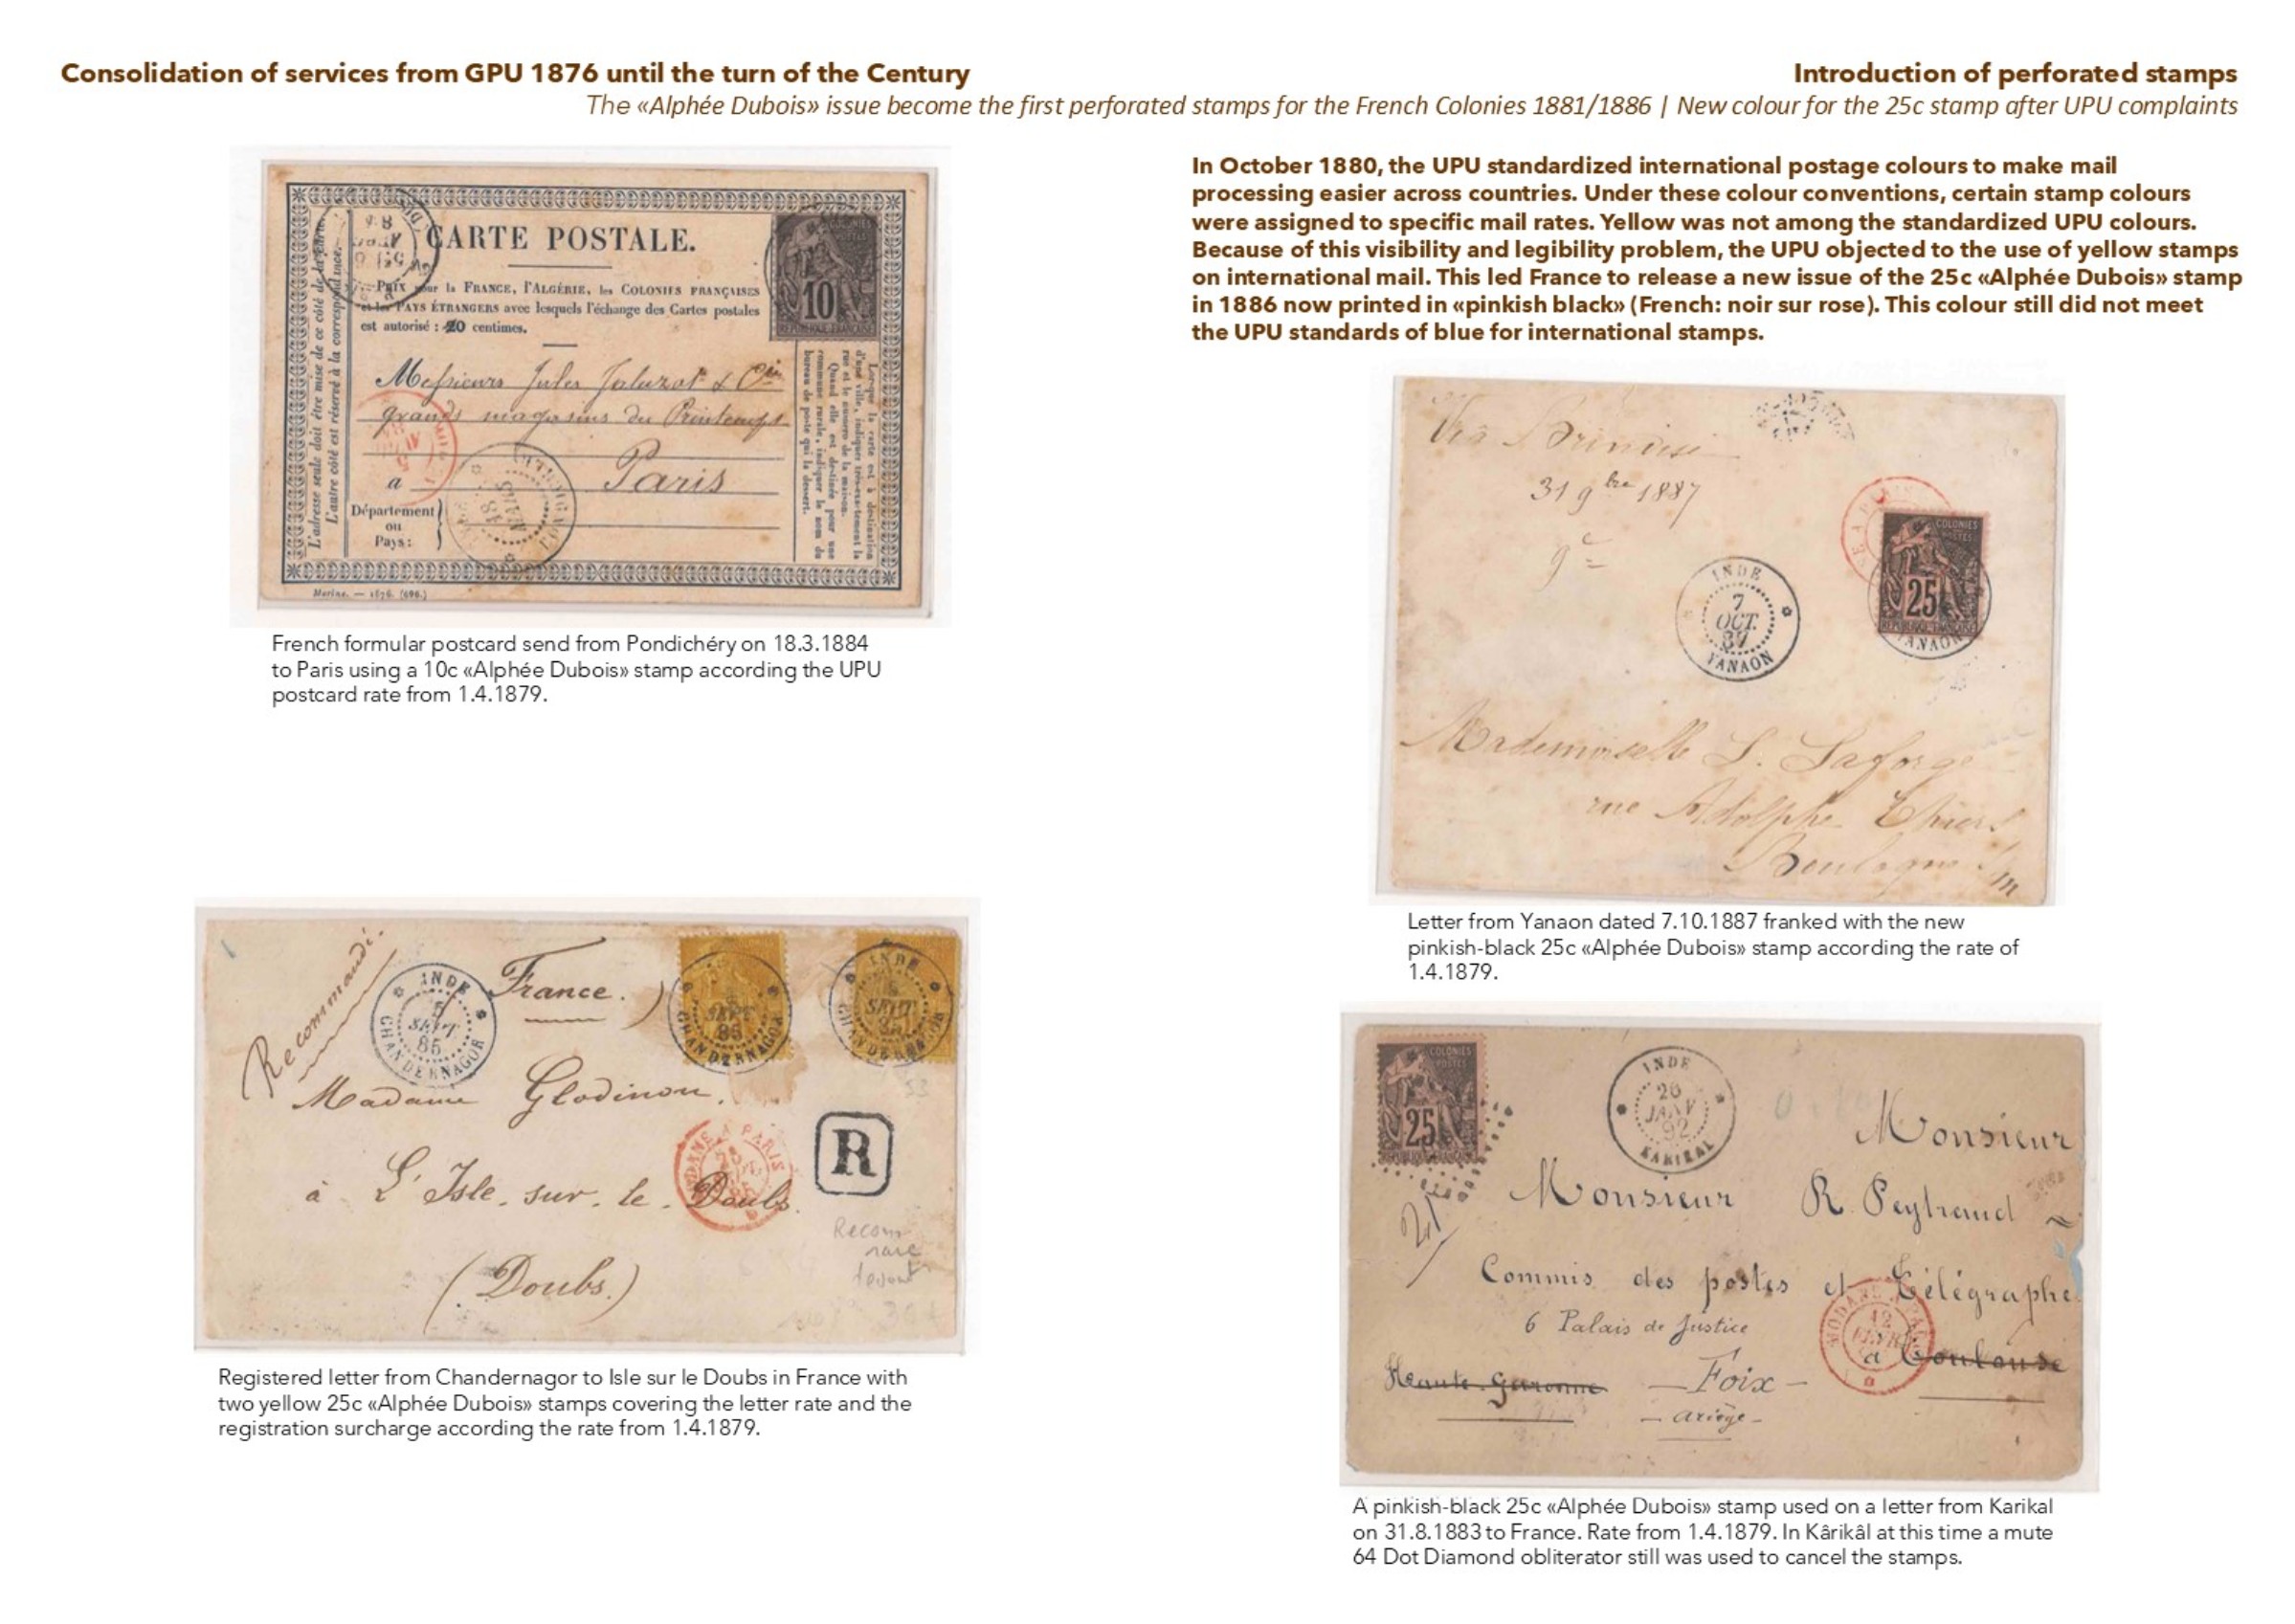 Consolidation of services from GPU 1876 until the turn of the Century
Introduction of perforated stamps
The «Alphée Dubois» issue become the first perforated stamps for the French Colonies 1881/1886 | New colour for the 25c stamp after UPU complaints
CARTE POSTALE.
Prix pour la FRANCE, l'ALGÉRIE, les COLONIES FRANÇAISES
et les PAYS ÉTRANGERS avec lesquels l'échange des Cartes postales
est autorisé : 10 centimes.
L'adresse seule doit être mise de ce côté de la carte.
L'autre côté est réservé à la correspondance.
COLONIES
POSTES
10
REPUBLIQUE FRANÇAISE
Lorsque la carte est à destination
d'une ville, indiquer très-exactement la
rue et le numéro de la maison.
Quand elle est destinée pour une
commune rurale, indiquer le nom du
bureau de poste qui la dessert.
Messieurs Jules Jaluzot & Cie
grands magasins du Printemps
a Paris
Département
ou
Pays:
Marine. — 1876. (696.)
French formular postcard send from Pondichéry on 18.3.1884
to Paris using a 10c «Alphée Dubois» stamp according the UPU
postcard rate from 1.4.1879.
Recommandé.
INDE
5
SEPT
85
CHANDERNAGOR
France.
SEPT
85
CHANDERNAGOR
INDE
SEPT
CHANDERNAGOR
Madame Glodinon,
MODANE A PARIS
R
à L'Isle. sur. le. Doubs.
(Doubs.)
Recom
rare
devant
Registered letter from Chandernagor to Isle sur le Doubs in France with
two yellow 25c «Alphée Dubois» stamps covering the letter rate and the
registration surcharge according the rate from 1.4.1879.
In October 1880, the UPU standardized international postage colours to make mail
processing easier across countries. Under these colour conventions, certain stamp colours
were assigned to specific mail rates. Yellow was not among the standardized UPU colours.
Because of this visibility and legibility problem, the UPU objected to the use of yellow stamps
on international mail. This led France to release a new issue of the 25c «Alphée Dubois» stamp
in 1886 now printed in «pinkish black» (French: noir sur rose). This colour still did not meet
the UPU standards of blue for international stamps.
Via Brindisi
31 9bre 1887
COLONIES
POSTES
25
REPUBLIQUE FRANÇAISE
YANAON
INDE
7
OCT.
87
YANAON
Mademoiselle L. Laforge
rue Adolphe Thiers
Boulogne s/m
Letter from Yanaon dated 7.10.1887 franked with the new
pinkish-black 25c «Alphée Dubois» stamp according the rate of
1.4.1879.
COLONIES
POSTES
25
REPUBLIQUE FRANÇAISE
INDE
26
JANV
92
KARIKAL
Monsieur
Monsieur R. Peytraud
Commis des postes et Télégraphe
6 Palais de Justice
MODANE A PARIS
12
FEVR
à Toulouse
Haute-Garonne — Foix —
— ariège —
A pinkish-black 25c «Alphée Dubois» stamp used on a letter from Karikal
on 31.8.1883 to France. Rate from 1.4.1879. In Kârikâl at this time a mute
64 Dot Diamond obliterator still was used to cancel the stamps.